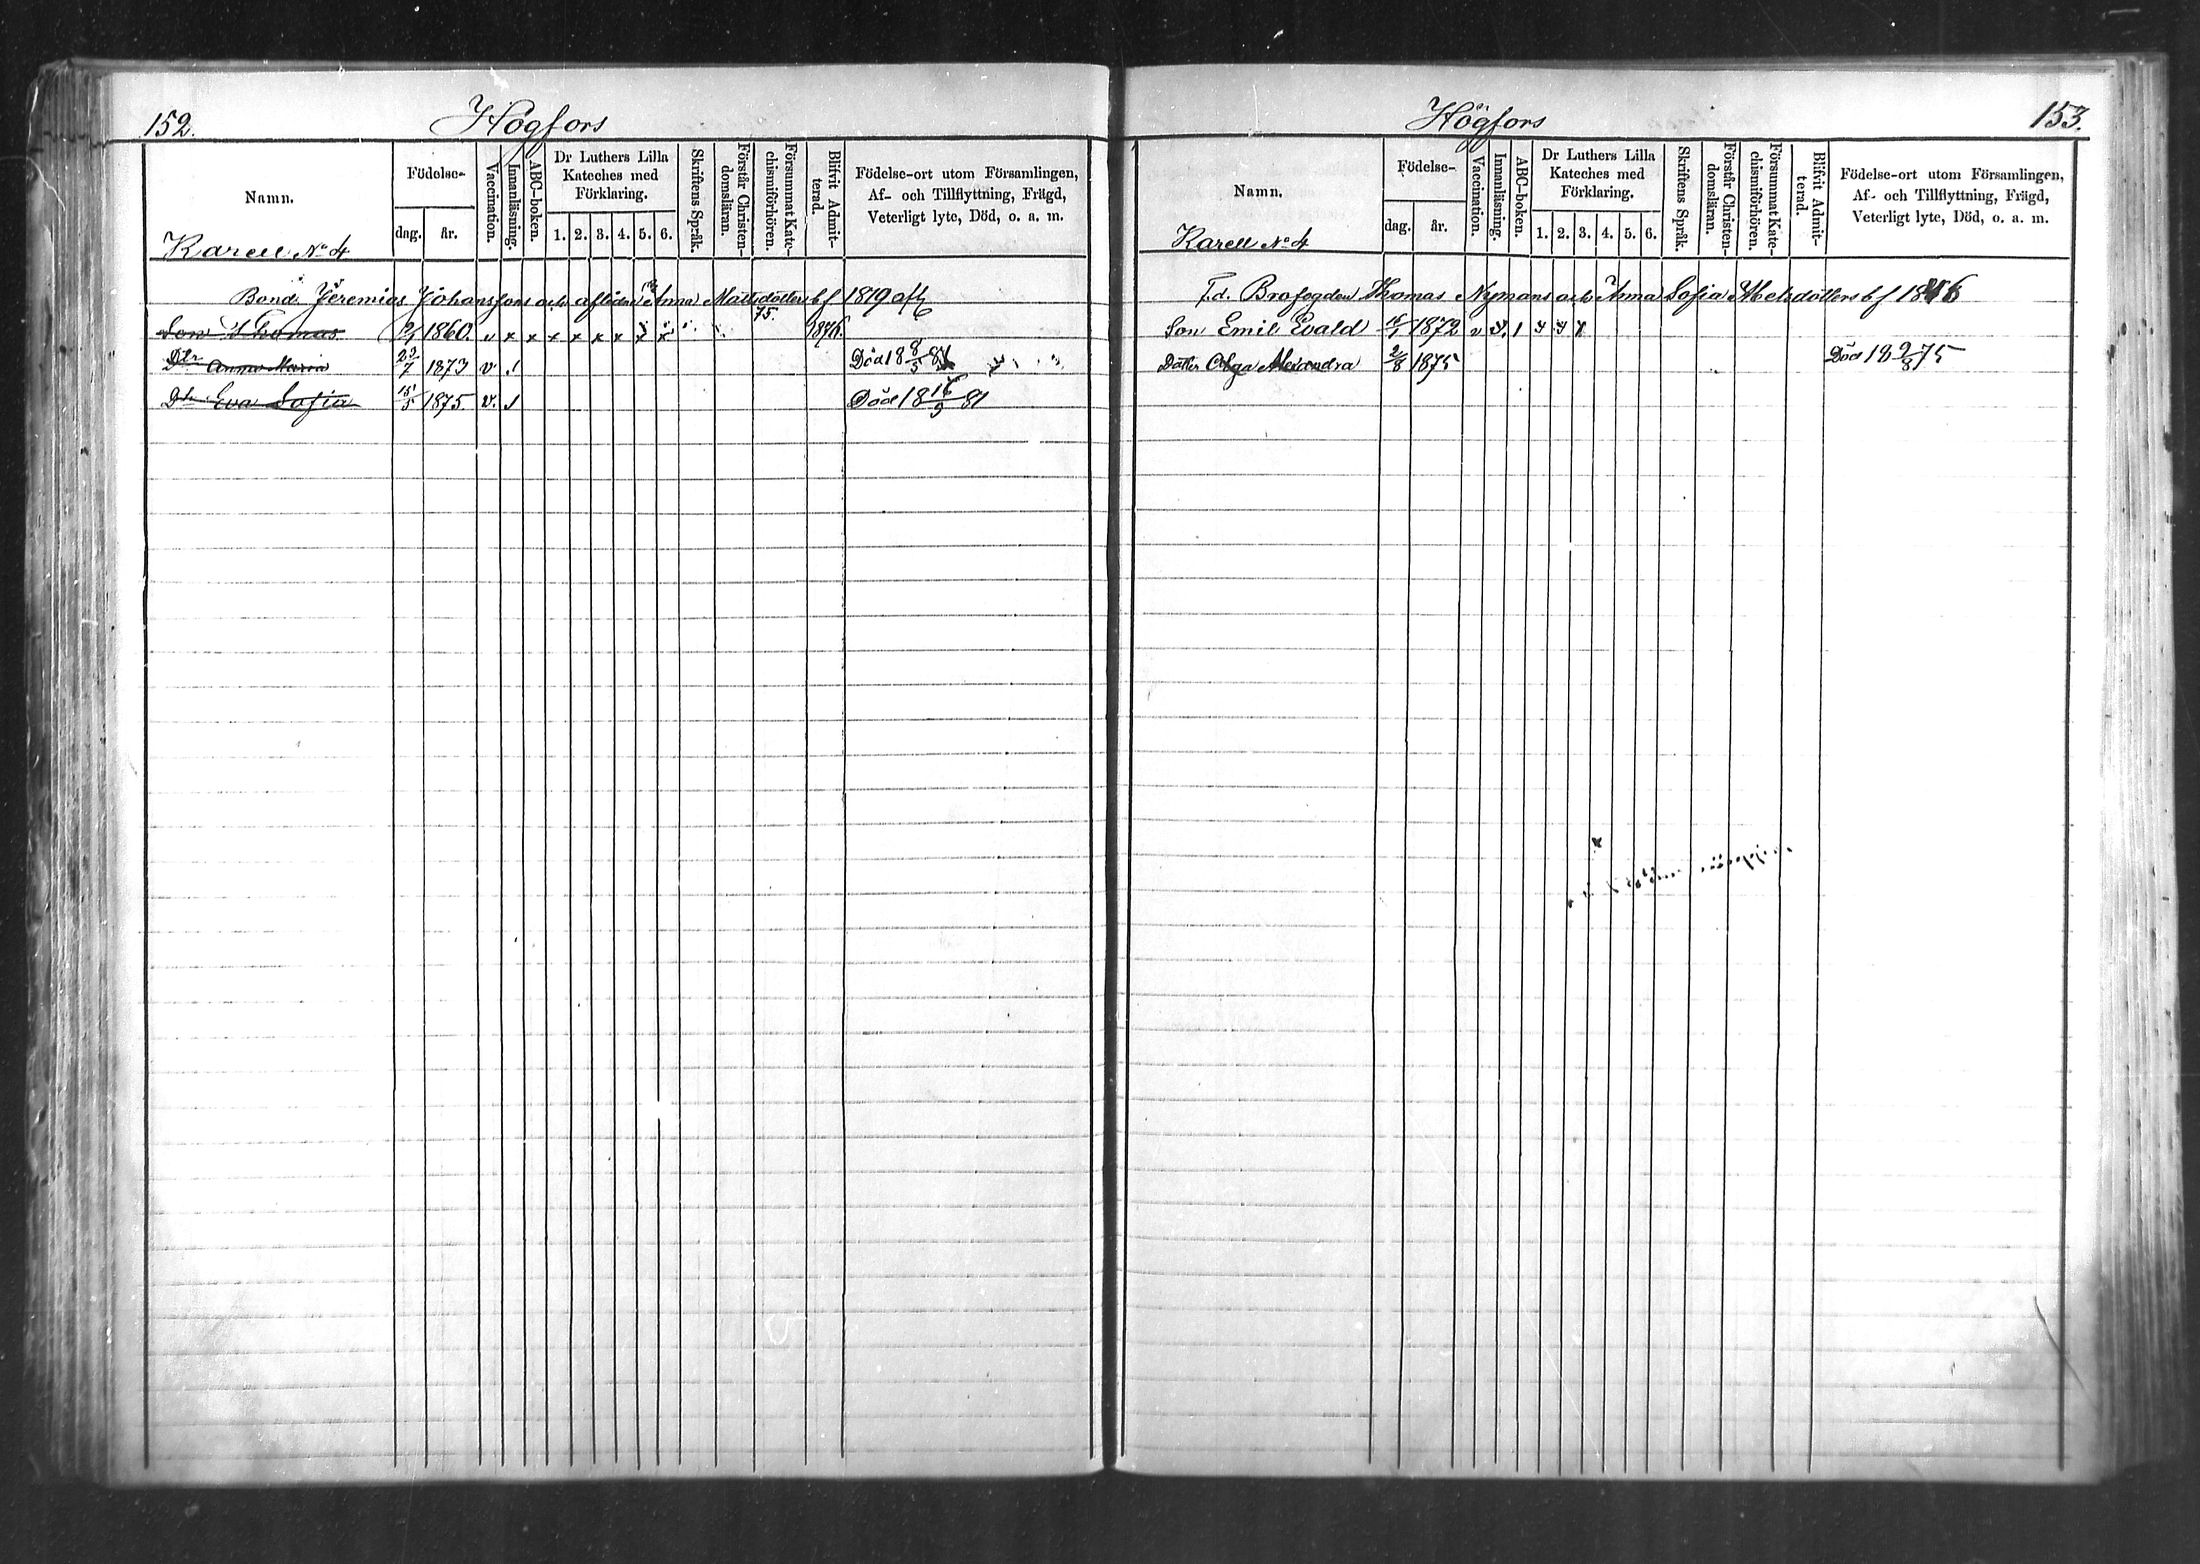 152. Högfors
Namn. Födelse- dag. år. Vaccination. Innanläsning. ABC-boken. Dr Luthers Lilla Kateches med Förklaring. 1. 2. 3. 4. 5. 6. Skriftens Språk. Förstår Christendomsläran. Försummat Katechismiförhören. Blifvit Admitterad. Födelse-ort utom Församlingen, Af- och Tillflyttning, Frägd, Veterligt lyte, Död, o. a. m.
Karell No 4
Bond. Jeremias Johanssons och aflidna Anna Mattsdotters bf 1879
Son Thomas 2/1 1860. v x x x x x x 75. 1876.
Dtr Anna Maria 23/7 1873 v / Död 18 8/5 81
Dtr Eva Sofia 15/5 1875. v. / Död 18 16/5 81
Högfors 153.
Namn. Födelse- dag. år. Vaccination. Innanläsning. ABC-boken. Dr Luthers Lilla Kateches med Förklaring. 1. 2. 3. 4. 5. 6. Skriftens Språk. Förstår Christendomsläran. Försummat Katechismiförhören. Blifvit Admitterad. Födelse-ort utom Församlingen, Af- och Tillflyttning, Frägd, Veterligt lyte, Död, o. a. m.
Karell No 4
F.d. Brofogden Thomas Nymans och Anna Sofia Abelsdotters bf
Son Emil Evald 15/1 1872 v
Dotter Olga Alexandra 2/8 1875 Död 18 9/8 75